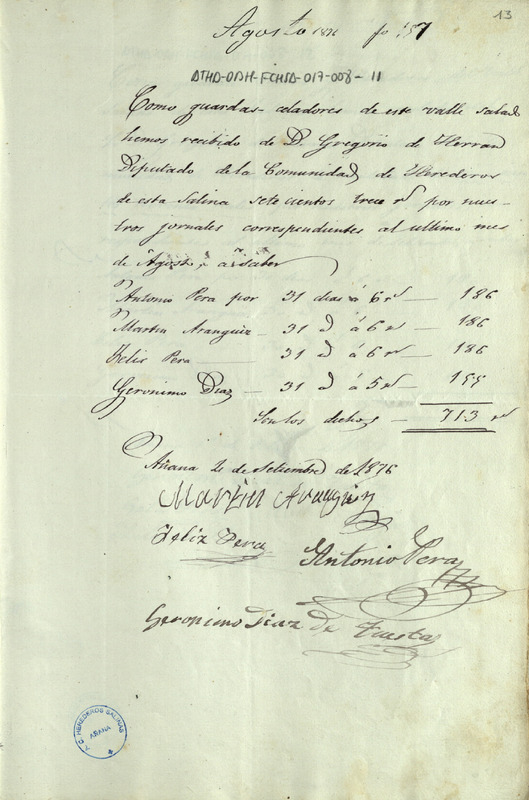 13
Agosto 1876 fo 157
ATHA-DAH-FCHSA-017-008-11
Como guardas celadores de este valle salad
hemos recibido de D. Gregorio de Herran
Diputado de la Comunidad de Herederos
de esta Salina setecientos trece rs por nues-
tros jornales correspondientes al ultimo mes
de Agosto, á saber
Antonio Pera por 31 dias á 6 rs — 186
Martin Aranguiz — 31 d á 6 rs — 186
Felis Pera — 31 d á 6 rs — 186
Geronimo Diaz — 31 d á 5 rs — 155
Son los dichos — 713 rs
Añana 2 de Setiembre de 1876
Martin Aranguiz
Feliz Pera
Antonio Pera
Geronimo Diaz De Tuesta
T. C. HEREDEROS SALINAS
AÑANA